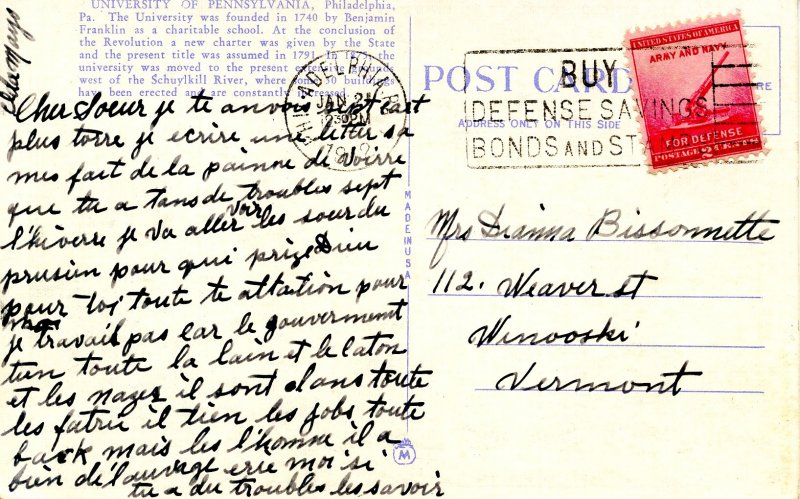 UNIVERSITY OF PENNSYLVANIA, Philadelphia,
Pa. The University was founded in 1740 by Benjamin
Franklin as a charitable school. At the conclusion of
the Revolution a new charter was given by the State
and the present title was assumed in 1791. In the
university was moved to the present extensive
west of the Schuylkill River, where some 50 buildings
have been erected and are constantly increased.
Cher Soeur je te anvois sept cart
plus torre je ecrire une letter sa
mes fait de la painne de voirre
que tu a tans de troubles sept
l'hiverre je va aller voir les sour du
prusien pour qui prize Dieu
pour toi toute te attation pour
moi
je travail pas car le gouvernemt
tien toute la lain et le caton
et les nazes il sont dans toute
les fatrie il tien les jobs toute
back mais les l'homme il a
bien de l'auvrage erie moi si
tu a du troubles les savoir
MADE IN USA
M
PHILADELPHIA, PA.
JAN 24
12 30 PM
1942
BUY
DEFENSE SAVINGS
BONDS AND STAMPS
POST CARD
ADDRESS ONLY ON THIS SIDE
HERE
UNITED STATES OF AMERICA
ARMY AND NAVY
FOR DEFENSE
POSTAGE 2 CENTS
Mrs Dianna Bissonnette
112. Weaver st
Winooski
Vermont